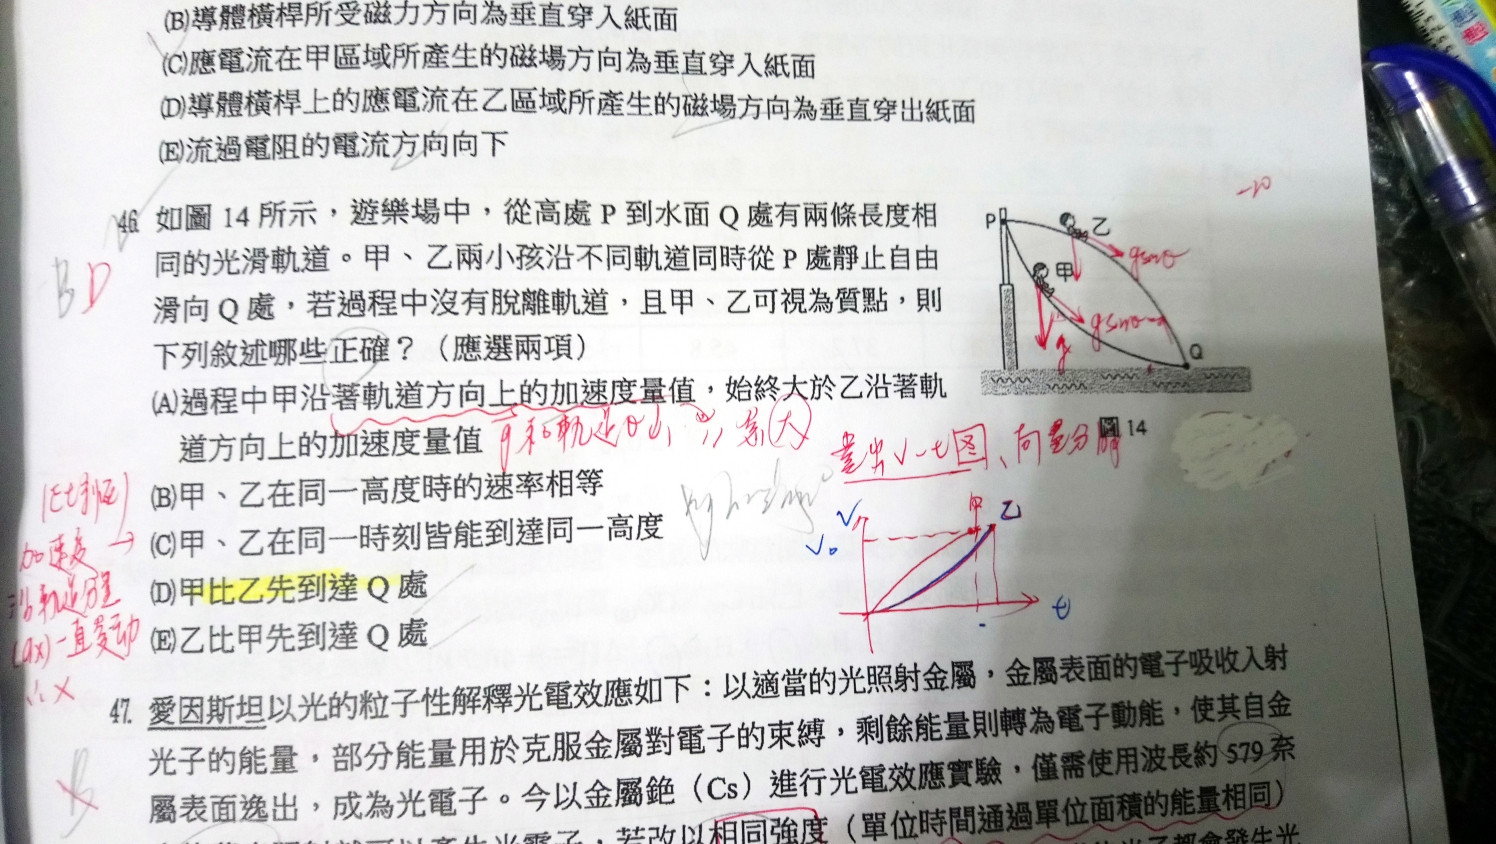 (B)導體橫桿所受磁力方向為垂直穿入紙面
(C)應電流在甲區域所產生的磁場方向為垂直穿入紙面
(D)導體橫桿上的應電流在乙區域所產生的磁場方向為垂直穿出紙面
(E)流過電阻的電流方向向下
-20
BD
46. 如圖 14 所示，遊樂場中，從高處 P 到水面 Q 處有兩條長度相
同的光滑軌道。甲、乙兩小孩沿不同軌道同時從 P 處靜止自由
滑向 Q 處，若過程中沒有脫離軌道，且甲、乙可視為質點，則
下列敘述哪些正確？（應選兩項）
P
乙
gsinθ
甲
gsinθ
g
Q
圖 14
(A)過程中甲沿著軌道方向上的加速度量值，始終大於乙沿著軌
道方向上的加速度量值
畫出 v-t图、向量分解
(B)甲、乙在同一高度時的速率相等
(C)甲、乙在同一時刻皆能到達同一高度
(D)甲比乙先到達 Q 處
(E)乙比甲先到達 Q 處
加速度
沿軌道分量
(ax)一直變動
∴×
V
V₀
甲
乙
t
47. 愛因斯坦以光的粒子性解釋光電效應如下：以適當的光照射金屬，金屬表面的電子吸收入射
光子的能量，部分能量用於克服金屬對電子的束縛，剩餘能量則轉為電子動能，使其自金
屬表面逸出，成為光電子。今以金屬銫（Cs）進行光電效應實驗，僅需使用波長約 579 奈
若改以相同強度（單位時間通過單位面積的能量相同）